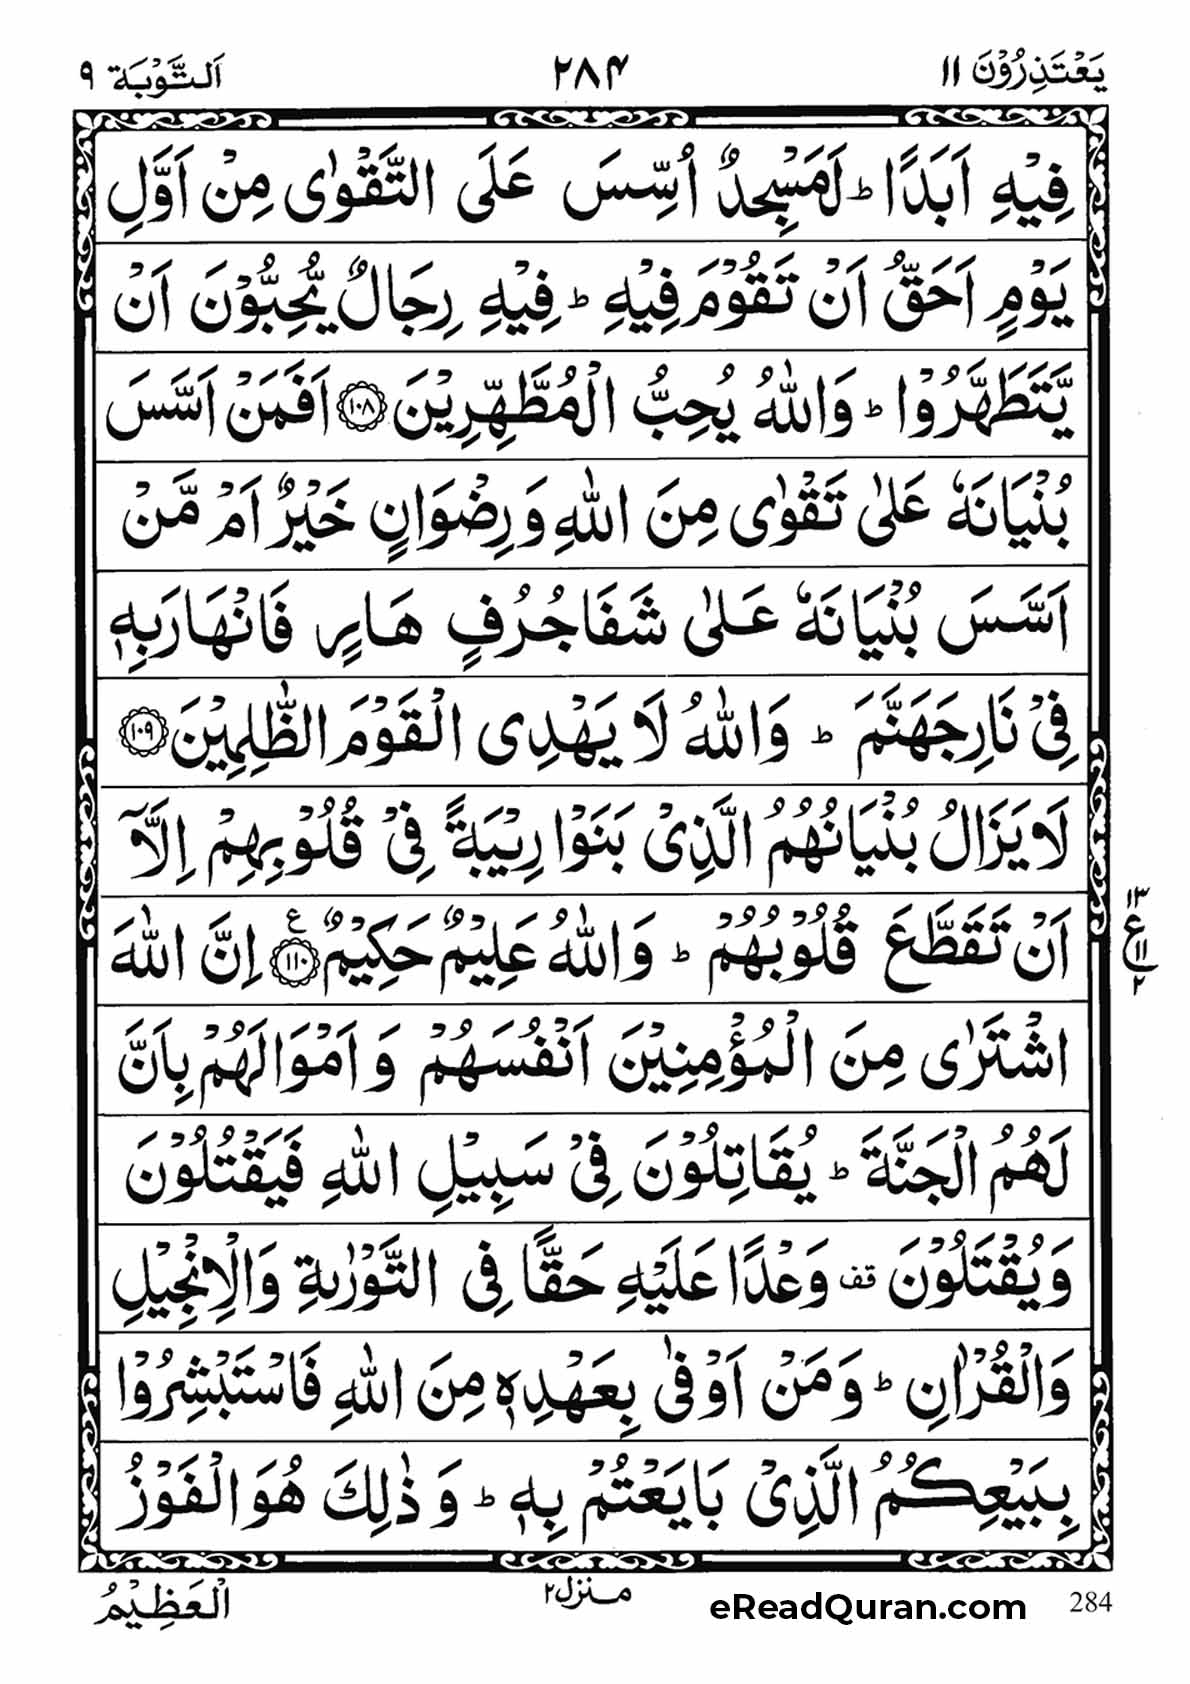 يَعْتَذِرُوْنَ ۱۱
۲۸۴
اَلتَّوْبَة ۹
فِيْهِ اَبَدًا ؕ لَمَسْجِدٌ اُسِّسَ عَلَى التَّقْوٰى مِنْ اَوَّلِ
يَوْمٍ اَحَقُّ اَنْ تَقُوْمَ فِيْهِ ؕ فِيْهِ رِجَالٌ يُّحِبُّوْنَ اَنْ
يَّتَطَهَّرُوْا ؕ وَاللّٰهُ يُحِبُّ الْمُطَّهِّرِيْنَ ﴿۱۰۸﴾ اَفَمَنْ اَسَّسَ
بُنْيَانَهٗ عَلٰى تَقْوٰى مِنَ اللّٰهِ وَرِضْوَانٍ خَيْرٌ اَمْ مَّنْ
اَسَّسَ بُنْيَانَهٗ عَلٰى شَفَا جُرُفٍ هَارٍ فَانْهَارَ بِهٖ
فِيْ نَارِ جَهَنَّمَ ؕ وَاللّٰهُ لَا يَهْدِى الْقَوْمَ الظّٰلِمِيْنَ ﴿۱۰۹﴾
لَا يَزَالُ بُنْيَانُهُمُ الَّذِيْ بَنَوْا رِيْبَةً فِيْ قُلُوْبِهِمْ اِلَّاۤ
اَنْ تَقَطَّعَ قُلُوْبُهُمْ ؕ وَاللّٰهُ عَلِيْمٌ حَكِيْمٌ ﴿۱۱۰﴾ ع اِنَّ اللّٰهَ
۱۳
ع ۱۱
۲
اشْتَرٰى مِنَ الْمُؤْمِنِيْنَ اَنْفُسَهُمْ وَاَمْوَالَهُمْ بِاَنَّ
لَهُمُ الْجَنَّةَ ؕ يُقَاتِلُوْنَ فِيْ سَبِيْلِ اللّٰهِ فَيَقْتُلُوْنَ
وَيُقْتَلُوْنَ قف وَعْدًا عَلَيْهِ حَقًّا فِى التَّوْرٰىةِ وَالْاِنْجِيْلِ
وَالْقُرْاٰنِ ؕ وَمَنْ اَوْفٰى بِعَهْدِهٖ مِنَ اللّٰهِ فَاسْتَبْشِرُوْا
بِبَيْعِكُمُ الَّذِيْ بَايَعْتُمْ بِهٖ ؕ وَذٰلِكَ هُوَ الْفَوْزُ
الْعَظِيْمُ
منزل ۲
eReadQuran.com
284